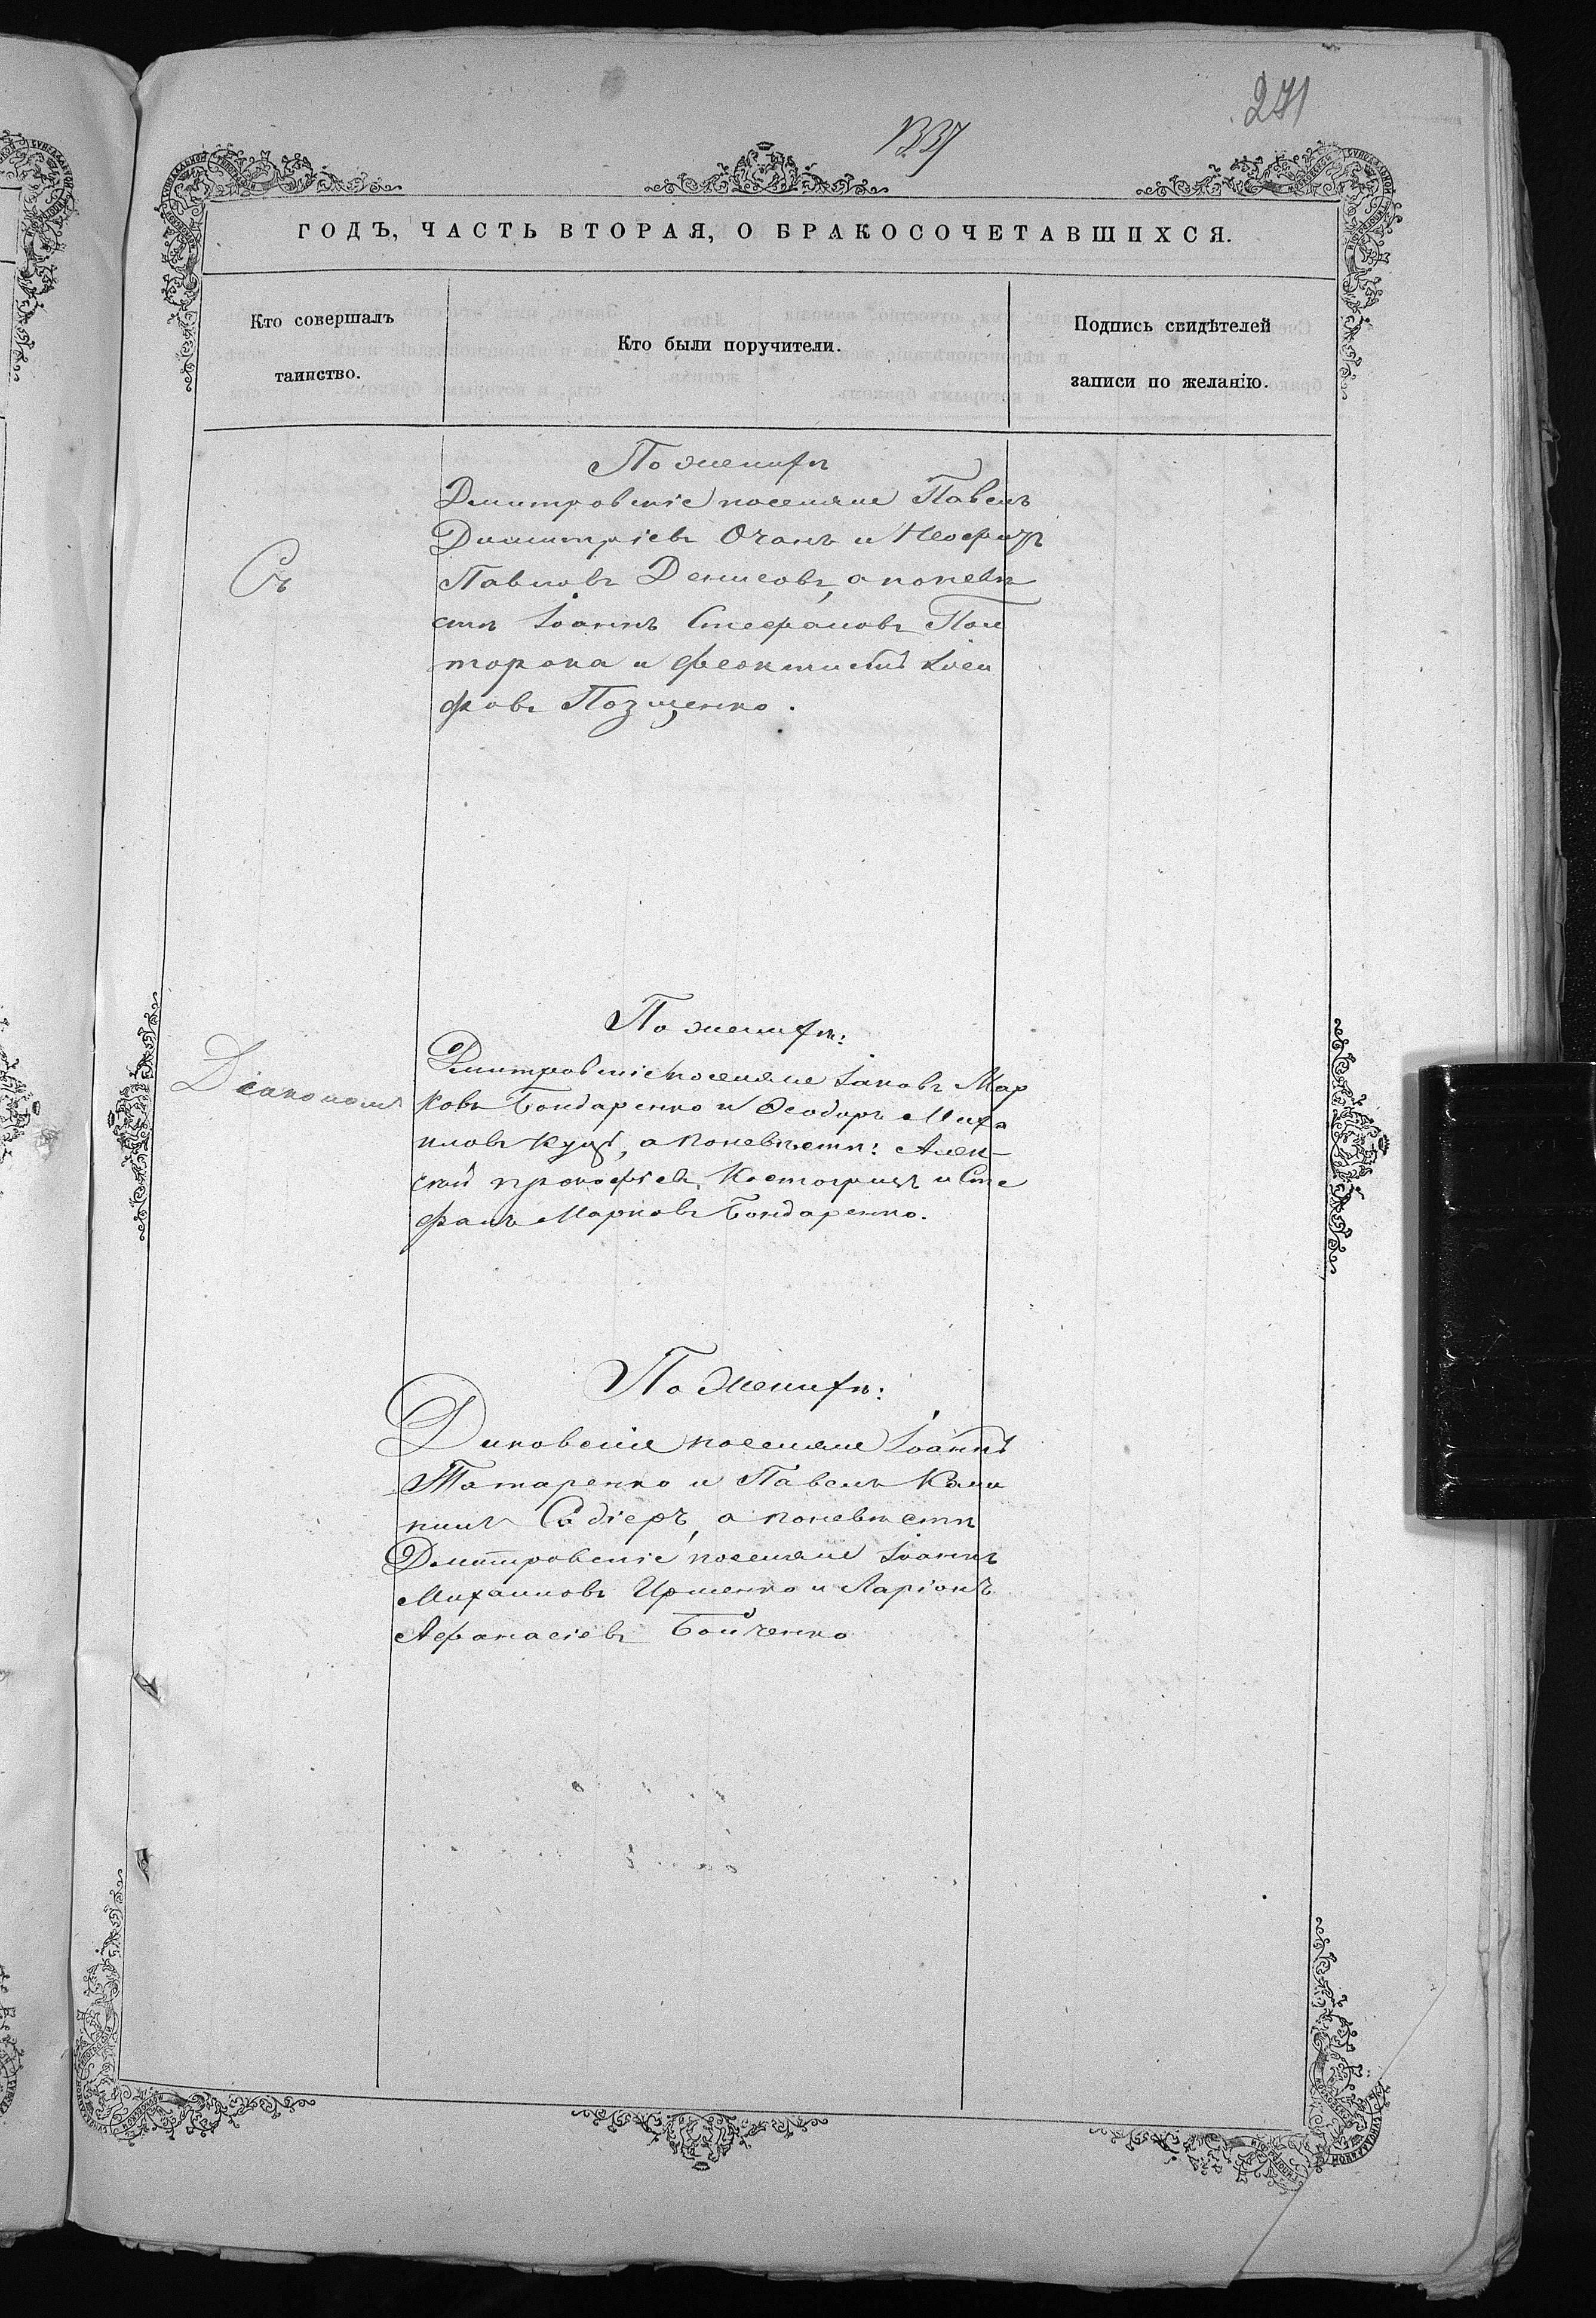 271
ГОДЪ, ЧАСТЬ ВТОРАЯ, О БРАКОСОЧЕТАВШИХСЯ.
Кто совершалъ
таинство.
Кто были поручители.
Подпись свидѣтелей
записи по желанію.
По женихѣ
Дмитровскіе поселяне Павелъ
Димитріевъ Очанъ и Неофитъ
Съ
Павловъ Денисовъ, а по невѣ
стѣ Іоаннъ Стефановъ Пол
торока и Феоктистъ Іоси
фовъ Позщенко.
По женихѣ:
Дмитровскіе поселяне Іаковъ Мар
Діакономъ
ковъ Бондаренко и Ѳеодоръ Миха
иловъ Куцъ, а по невѣстѣ: Алек-
сѣй Прокофіевъ Костогрызъ и Сте
фанъ Марковъ Бондаренко.
По Женихѣ:
Диковскіе поселяне Іоаннъ
Татаренко и Павелъ Кали
никъ Садіеръ, а по невѣстѣ
Дмитровскіе поселяне Іоаннъ
Михаиловъ Ирженко и Ларіонъ
Афанасіевъ Бойченко